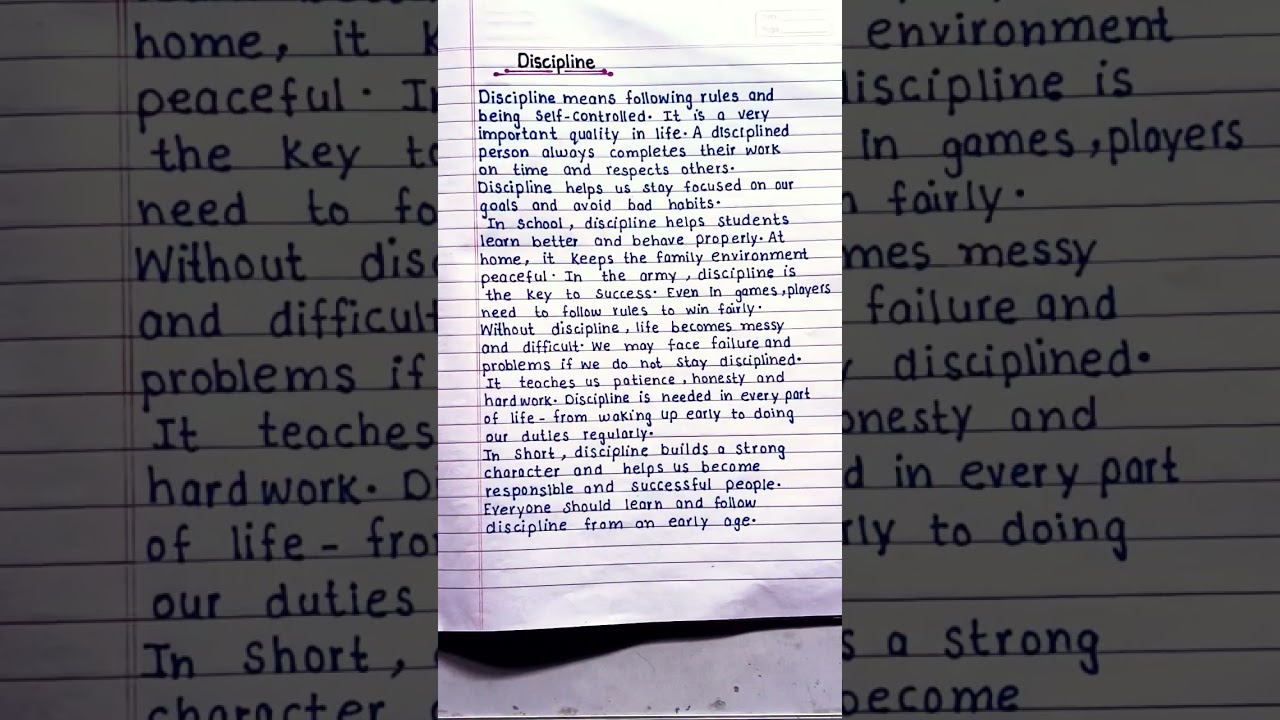 Discipline
Discipline means following rules and
being self-controlled. It is a very
important quality in life. A disciplined
person always completes their work
on time and respects others.
Discipline helps us stay focused on our
goals and avoid bad habits.
In school, discipline helps students
learn better and behave properly. At
home, it keeps the family environment
peaceful. In the army, discipline is
the key to success. Even in games, players
need to follow rules to win fairly.
Without discipline, life becomes messy
and difficult. We may face failure and
problems if we do not stay disciplined.
It teaches us patience, honesty and
hard work. Discipline is needed in every part
of life - from waking up early to doing
our duties regularly.
In short, discipline builds a strong
character and helps us become
responsible and successful people.
Everyone should learn and follow
discipline from an early age.